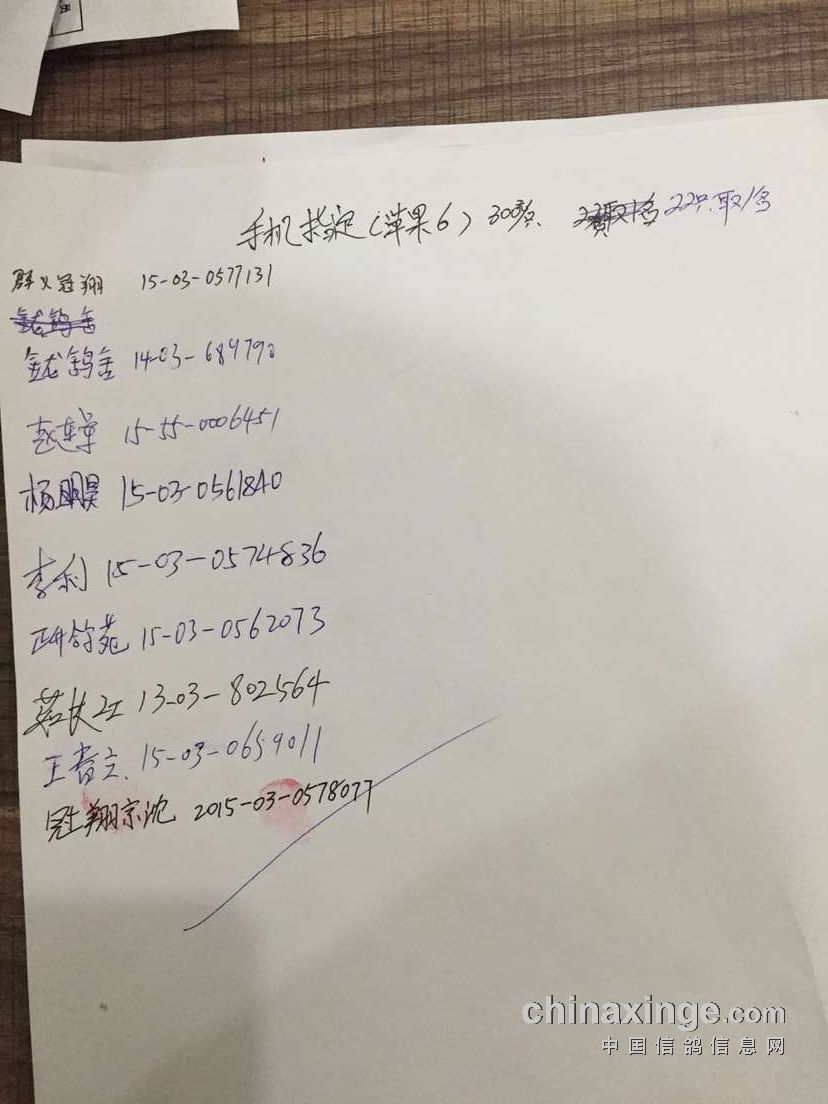 手机指定(苹果6) 300参. 22只.取1名
群义冠翔 15-03-0577131
金龙鸽舍
金龙鸽舍 14-03-689790
赵连军 15-55-0006451
杨明昊 15-03-0561840
李利 15-03-0574836
15-03-0562073
13-03-802564
王 立. 15-03-0659011
冠翔宗沈 2015-03-0578077
chinaxinge.com
中国信鸽信息网